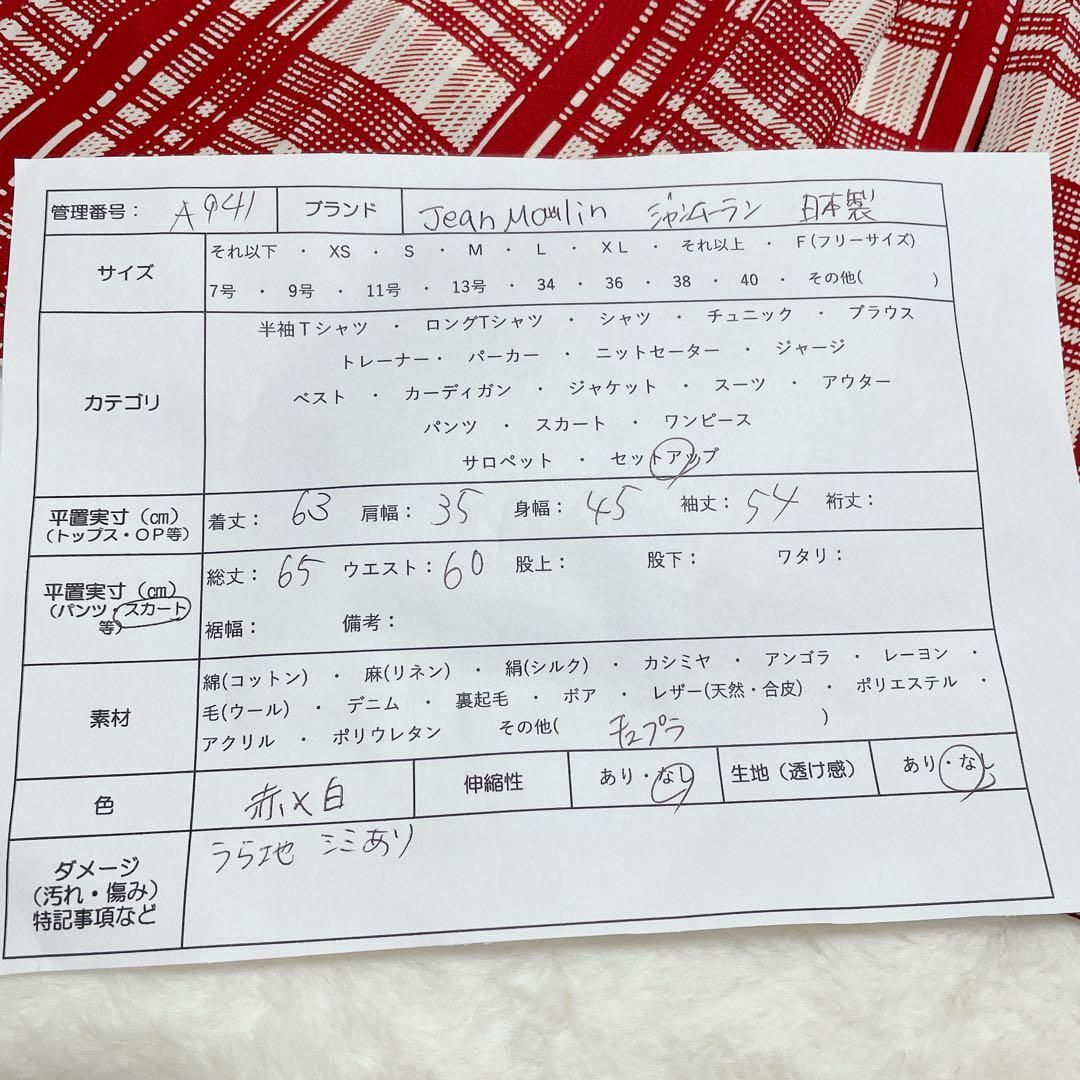 管理番号： A941 ブランド Jean Moulin ジャンムーラン 日本製
サイズ
それ以下 ・ XS ・ S ・ M ・ L ・ XL ・ それ以上 ・ F(フリーサイズ)
7号 ・ 9号 ・ 11号 ・ 13号 ・ 34 ・ 36 ・ 38 ・ 40 ・ その他( )
カテゴリ
半袖Tシャツ ・ ロングTシャツ ・ シャツ ・ チュニック ・ ブラウス
トレーナー・ パーカー ・ ニットセーター ・ ジャージ
ベスト ・ カーディガン ・ ジャケット ・ スーツ ・ アウター
パンツ ・ スカート ・ ワンピース
サロペット ・ セットアップ
平置実寸（㎝）
（トップス・OP等）
着丈： 63 肩幅： 35 身幅： 45 袖丈： 54 裄丈：
平置実寸（㎝）
（パンツ・スカート
等）
総丈： 65 ウエスト： 60 股上： 股下： ワタリ：
裾幅： 備考：
素材
綿(コットン) ・ 麻(リネン) ・ 絹(シルク) ・ カシミヤ ・ アンゴラ ・ レーヨン ・
毛(ウール) ・ デニム ・ 裏起毛 ・ ボア ・ レザー(天然・合皮) ・ ポリエステル ・
アクリル ・ ポリウレタン その他( キュプラ )
色 赤×白 伸縮性 あり・なし 生地（透け感） あり・なし
ダメージ
（汚れ・傷み）
特記事項など
うら地 シミあり